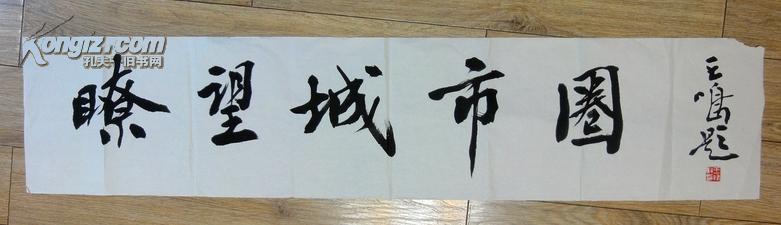 Kongfz.com
孔夫子旧书网
瞭望城市圈
王鸣题